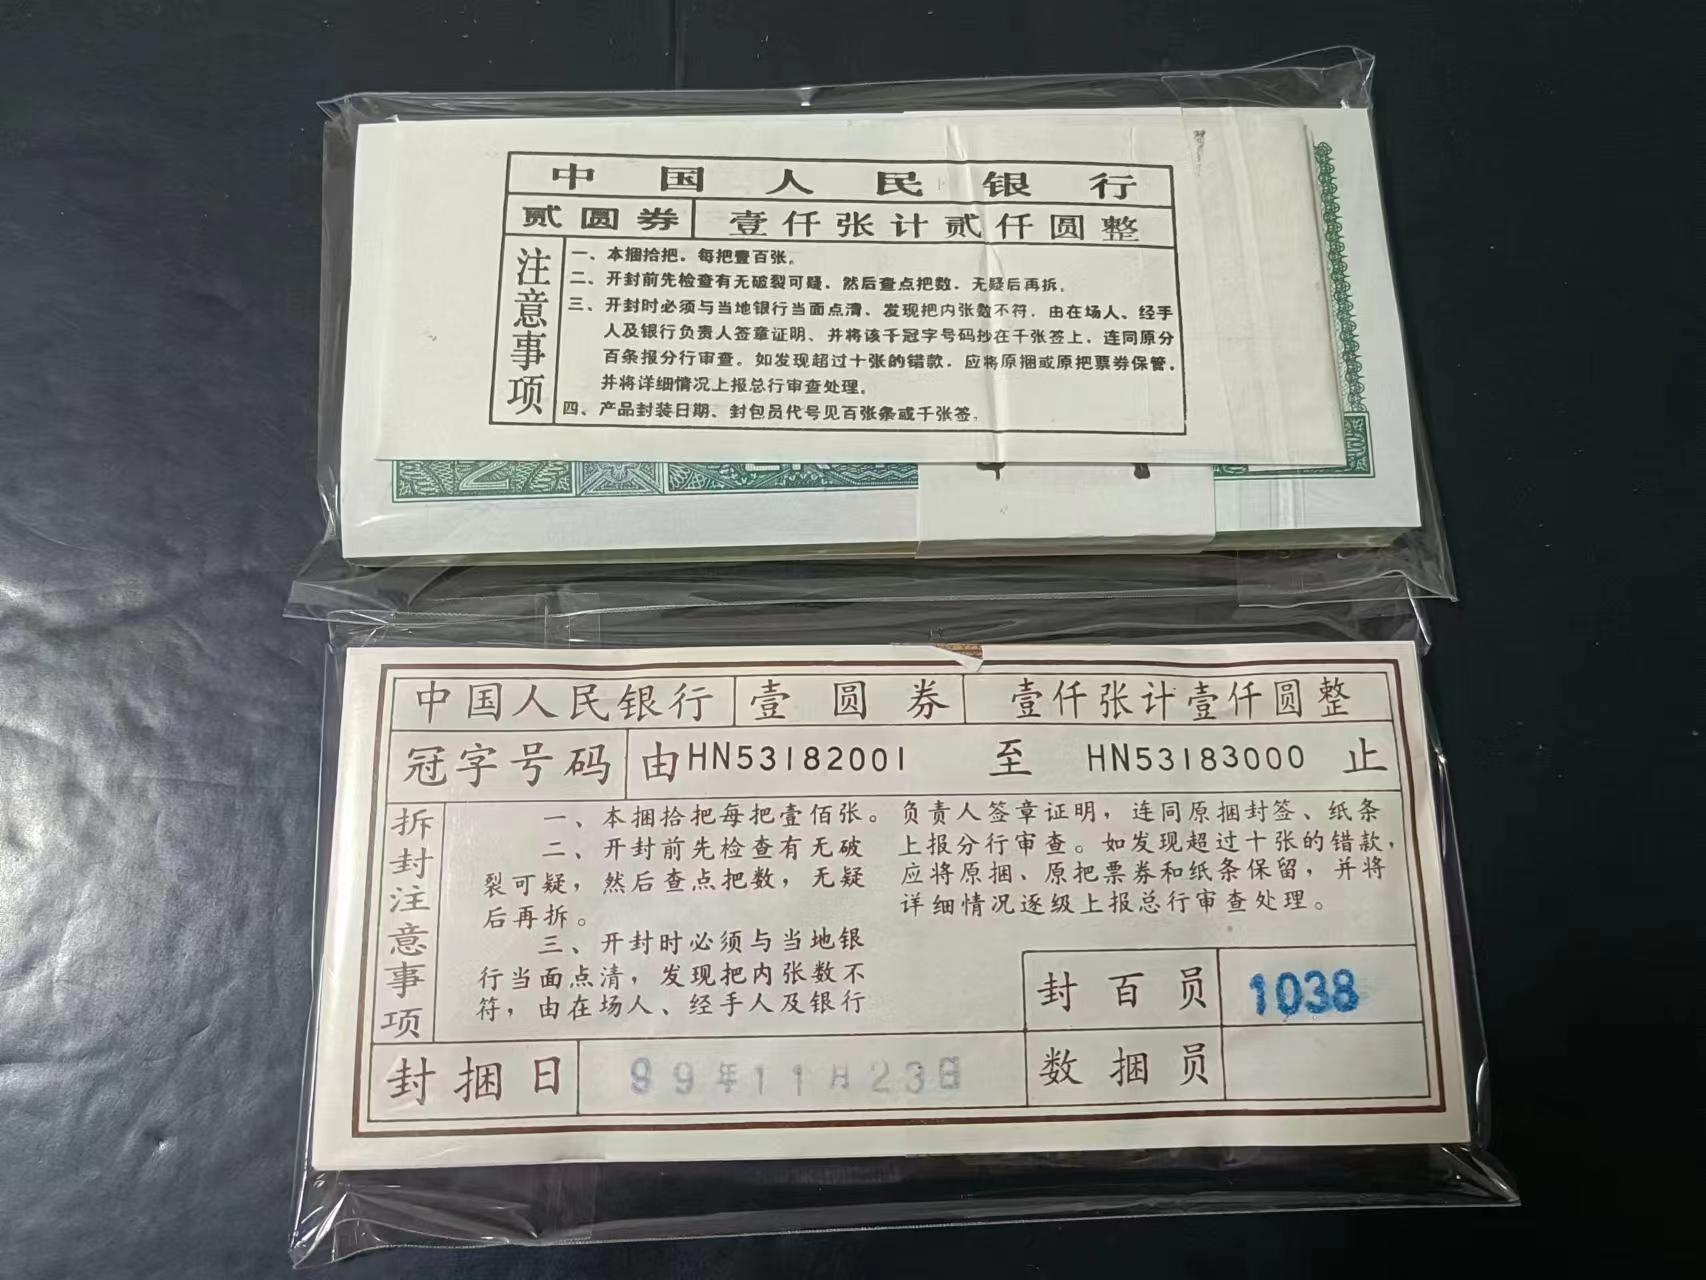 中国人民银行
贰圆券 壹仟张计贰仟圆整
注意事项
一、本捆拾把，每把壹百张。
二、开封前先检查有无破裂可疑，然后查点把数，无疑后再拆。
三、开封时必须与当地银行当面点清、发现把内张数不符，由在场人、经手
人及银行负责人签章证明、并将该千冠字号码抄在千张签上，连同原分
百条报分行审查。如发现超过十张的错款，应将原捆或原把票券保管，
并将详细情况上报总行审查处理。
四、产品封装日期、封包员代号见百张条或千张签。
2
中国人民银行 壹圆券 壹仟张计壹仟圆整
冠字号码 由HN53182001 至 HN53183000 止
拆封注意事项
一、本捆拾把每把壹佰张。
二、开封前先检查有无破
裂可疑，然后查点把数，无疑
后再拆。
三、开封时必须与当地银
行当面点清，发现把内张数不
符，由在场人、经手人及银行
负责人签章证明，连同原捆封签、纸条
上报分行审查。如发现超过十张的错款，
应将原捆、原把票券和纸条保留，并将
详细情况逐级上报总行审查处理。
封百员 1038
封捆日 99年11月23日
数捆员